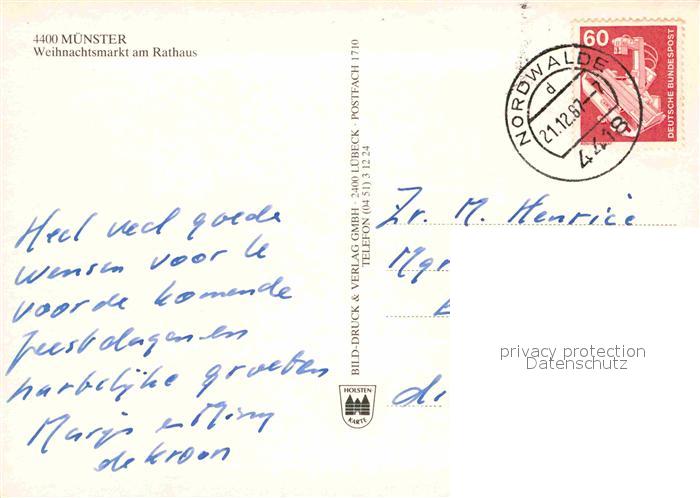 4400 MÜNSTER
Weihnachtsmarkt am Rathaus
Heel veel goede
wensen voor te
voor de komende
feestdagen en
hartelijke groeten
Marijo en Miny
de Kroon
BILD-DRUCK & VERLAG GMBH · 2400 LÜBECK · POSTFACH 1710
TELEFON (04 51) 3 12 24
HOLSTEN
KARTE
60
DEUTSCHE BUNDESPOST
NORDWALDE
d
21.12.87-7
4418
Zr. M. Henrice
Mgr
di
privacy protection
Datenschutz